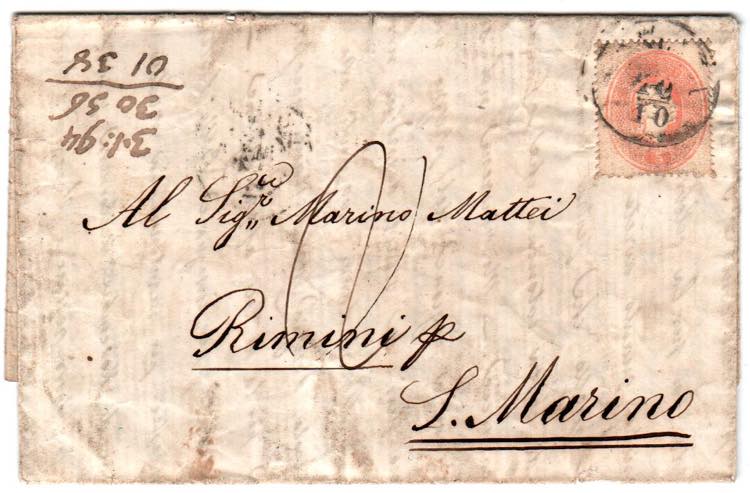 31:94
30 56
01 38
Al Sigr Marino Mattei
Rimini p
S. Marino